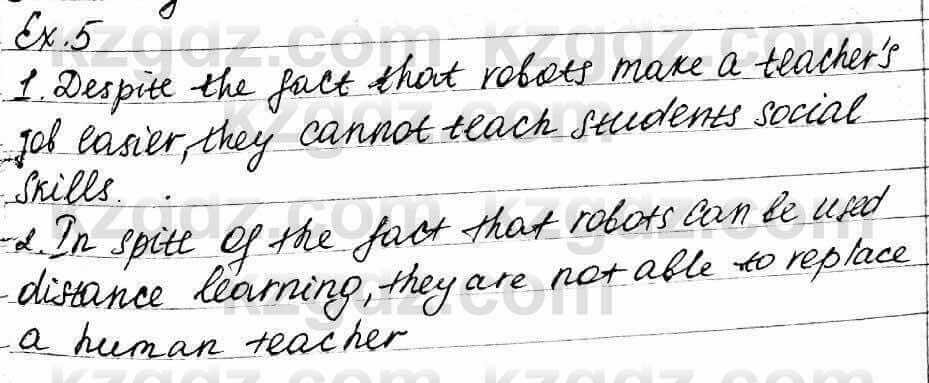 Ex.5
1. Despite the fact that robots make a teacher's
job easier, they cannot teach students social
skills.
2. In spite of the fact that robots can be used
distance learning, they are not able to replace
a human teacher